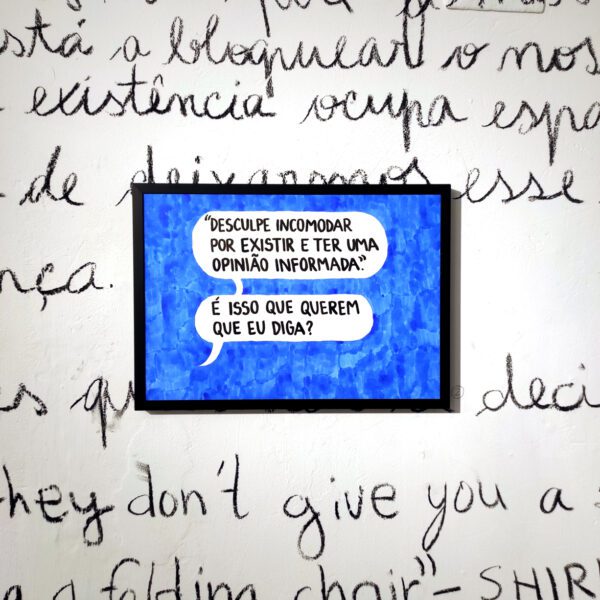 está a bloquear o nos
existência ocupa espa
de deixarmos esse
"DESCULPE INCOMODAR
POR EXISTIR E TER UMA
OPINIÃO INFORMADA."
É ISSO QUE QUEREM
QUE EU DIGA?
nça.
es qu deci
they don't give you a
g a folding chair" - SHIR